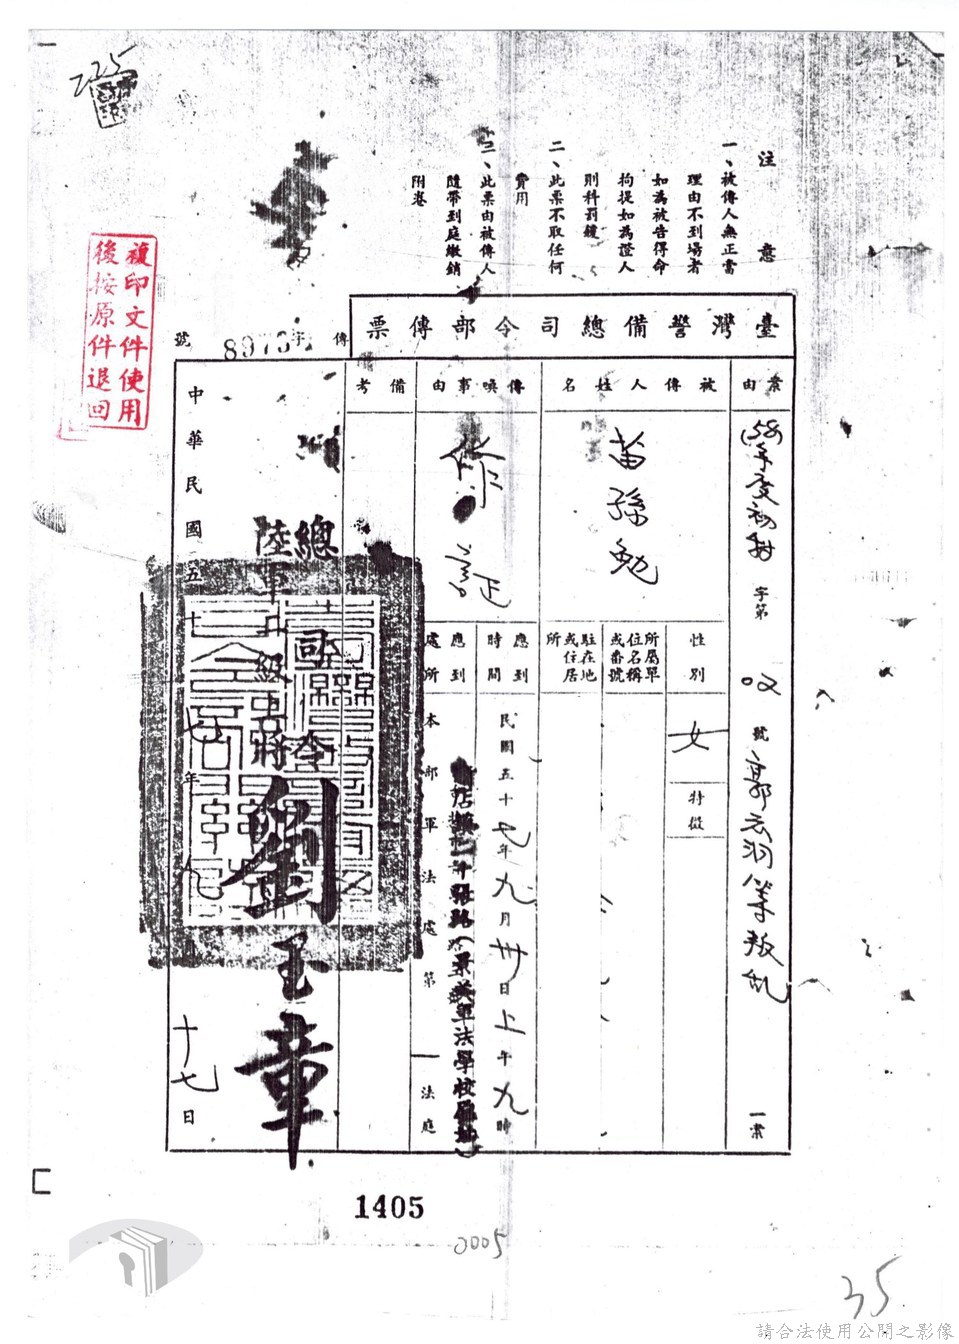 225
注意
一、被傳人無正當
理由不到場者
如為被告得命
拘提如為證人
則科罰鍰
二、此票不取任何
費用
三、此票由被傳人
隨帶到庭繳銷
附卷
複印文件使用
後按原件退回
臺灣警備總司令部傳票
傳 字 8975 號
案由
58年度初特字第 號郭云羽等叛乱一案
被傳人姓名
苗孫勉
性別
女
特徵
所屬單位名稱或番號
駐在地或住居所
傳喚事由
作証
應到時間
民國五十七年九月卅日上午九時
應到處所
本部軍法處第一法庭
店鎮二十張路(景美軍法學校原址)
備考
總司令
陸軍二級上將
劉玉章
中華民國五十七年九 十七日
1405
0005
35
請合法使用公開之影像